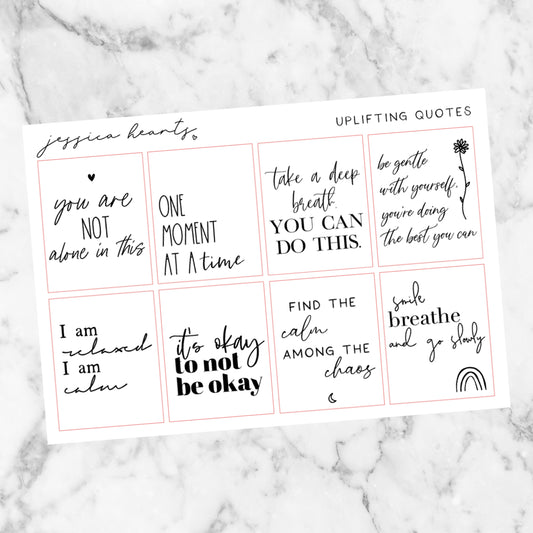 jessica hearts
UPLIFTING QUOTES
you are
NOT
alone in this
ONE
MOMENT
AT A time
take a deep
breath.
YOU CAN
DO THIS.
be gentle
with yourself.
you're doing
the best you can
I am
relaxed
I am
calm
it's okay
to not
be okay
FIND THE
calm
AMONG THE
chaos
smile
breathe
and go slowly